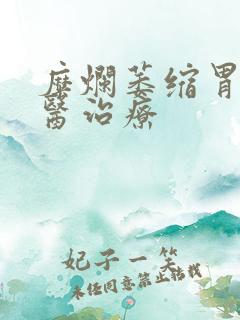 糜爛萎缩胃
醫治療
妃子一笑
未经同意禁止转载